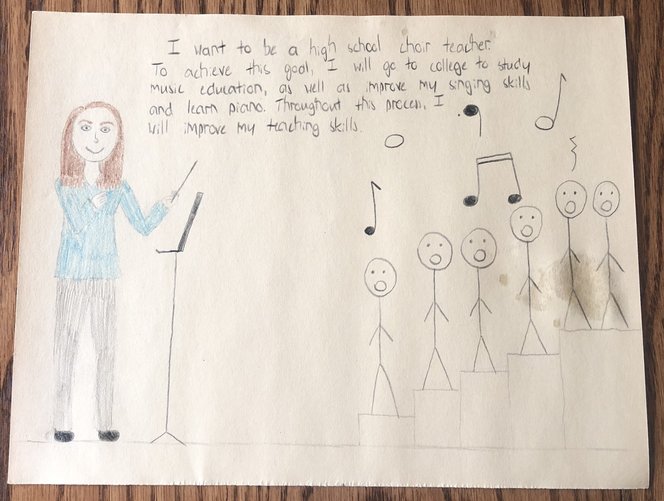 I want to be a high school choir teacher.
To achieve this goal, I will go to college to study
music education, as well as improve my singing skills
and learn piano. Throughout this process, I
will improve my teaching skills.